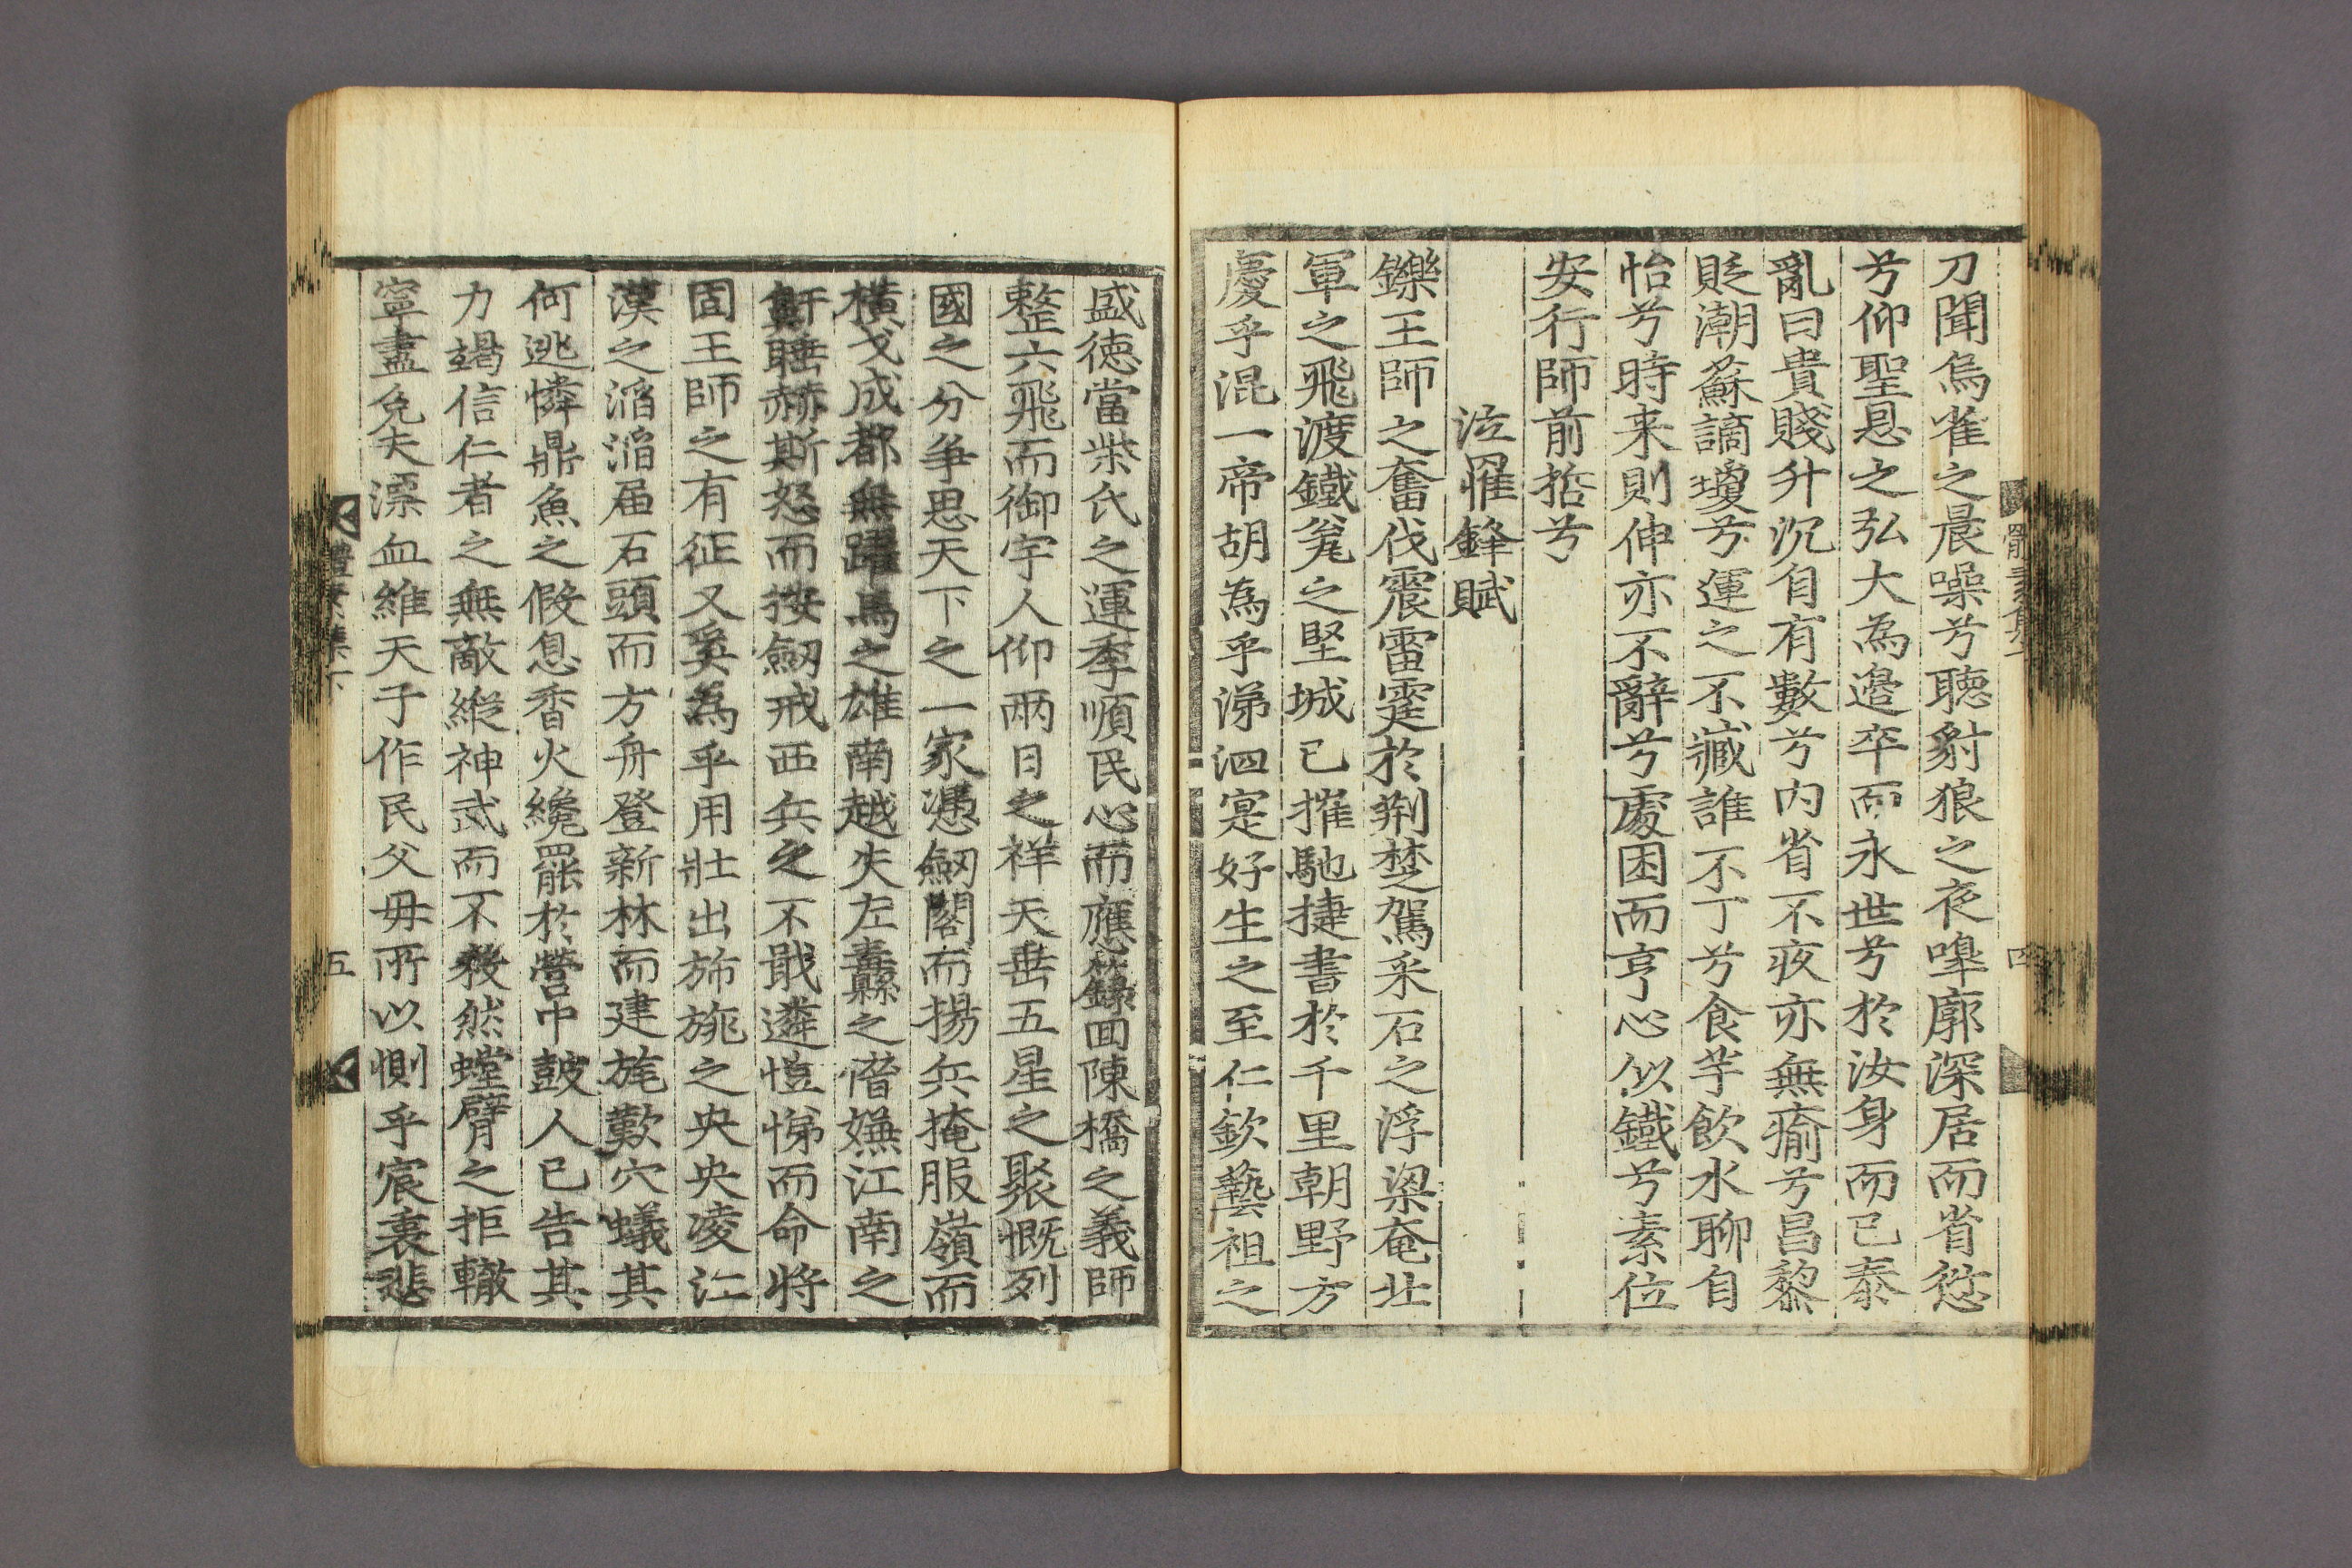 刀聞烏雀之晨噪兮聽豺狼之夜嘷廓深居而省愆
兮仰聖恩之弘大為邉卒而永世兮於汝身而已泰
亂曰貴賤升沉自有數兮内省不疚亦無瘉兮昌黎
貶潮蘇謫瓊兮運之不臧誰不丁兮食芋飮水聊自
怡兮時来則伸亦不辭兮處困而亨心似鐵兮素位
安行師前哲兮
泣罹鋒賦
鑠王師之奮伐震雷霆於荊楚駕采石之浮梁奄北
軍之飛渡鐵瓮之堅城已摧馳捷書於千里朝野方
慶乎混一帝胡為乎涕泗寔好生之至仁欽藝祖之
盛徳當柴氏之運季順民心而應籙回陳橋之義師
整六飛而御宇人仰兩日之祥天垂五星之聚慨列
國之分爭思天下之一家憑劒閣而揚兵掩服嶺而
橫戈成都無躍馬之雄南越失左纛之僭嫌江南之
鼾睡赫斯怒而按劒戒西兵之不戢遴愷悌而命將
固王師之有征又奚為乎用壯出斾旐之央央凌江
漢之滔滔届石頭而方舟登新林而建旄歎穴蟻其
何逃憐鼎魚之假息香火纔罷於營中鼓人已告其
力竭信仁者之無敵縱神武而不殺然螳臂之拒轍
寧盡免夫漂血維天子作民父毋所以惻乎宸衷悲
體素集下
五
四